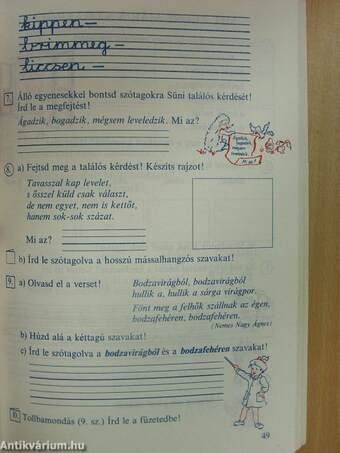 kippen –
brimmeg –
liccsen –
7. Álló egyenesekkel bontsd szótagokra Süni találós kérdését!
Írd le a megfejtést!
Ágadzik, bogadzik, mégsem leveledzik. Mi az?
8. a) Fejtsd meg a találós kérdést! Készíts rajzot!
Tavasszal kap levelet,
s ősszel küld csak választ,
de nem egyet, nem is kettőt,
hanem sok-sok százat.
Mi az?
b) Írd le szótagolva a hosszú mássalhangzós szavakat!
9. a) Olvasd el a verset!
Bodzavirágból, bodzavirágból
hullik a, hullik a sárga virágpor.
Fönt meg a felhők szállnak az égen,
bodzafehéren, bodzafehéren.
(Nemes Nagy Ágnes)
b) Húzd alá a kéttagú szavakat!
c) Írd le szótagolva a bodzavirágból és a bodzafehéren szavakat!
10. Tollbamondás (9. sz.) Írd le a füzetedbe!
49
Antikvárium.hu